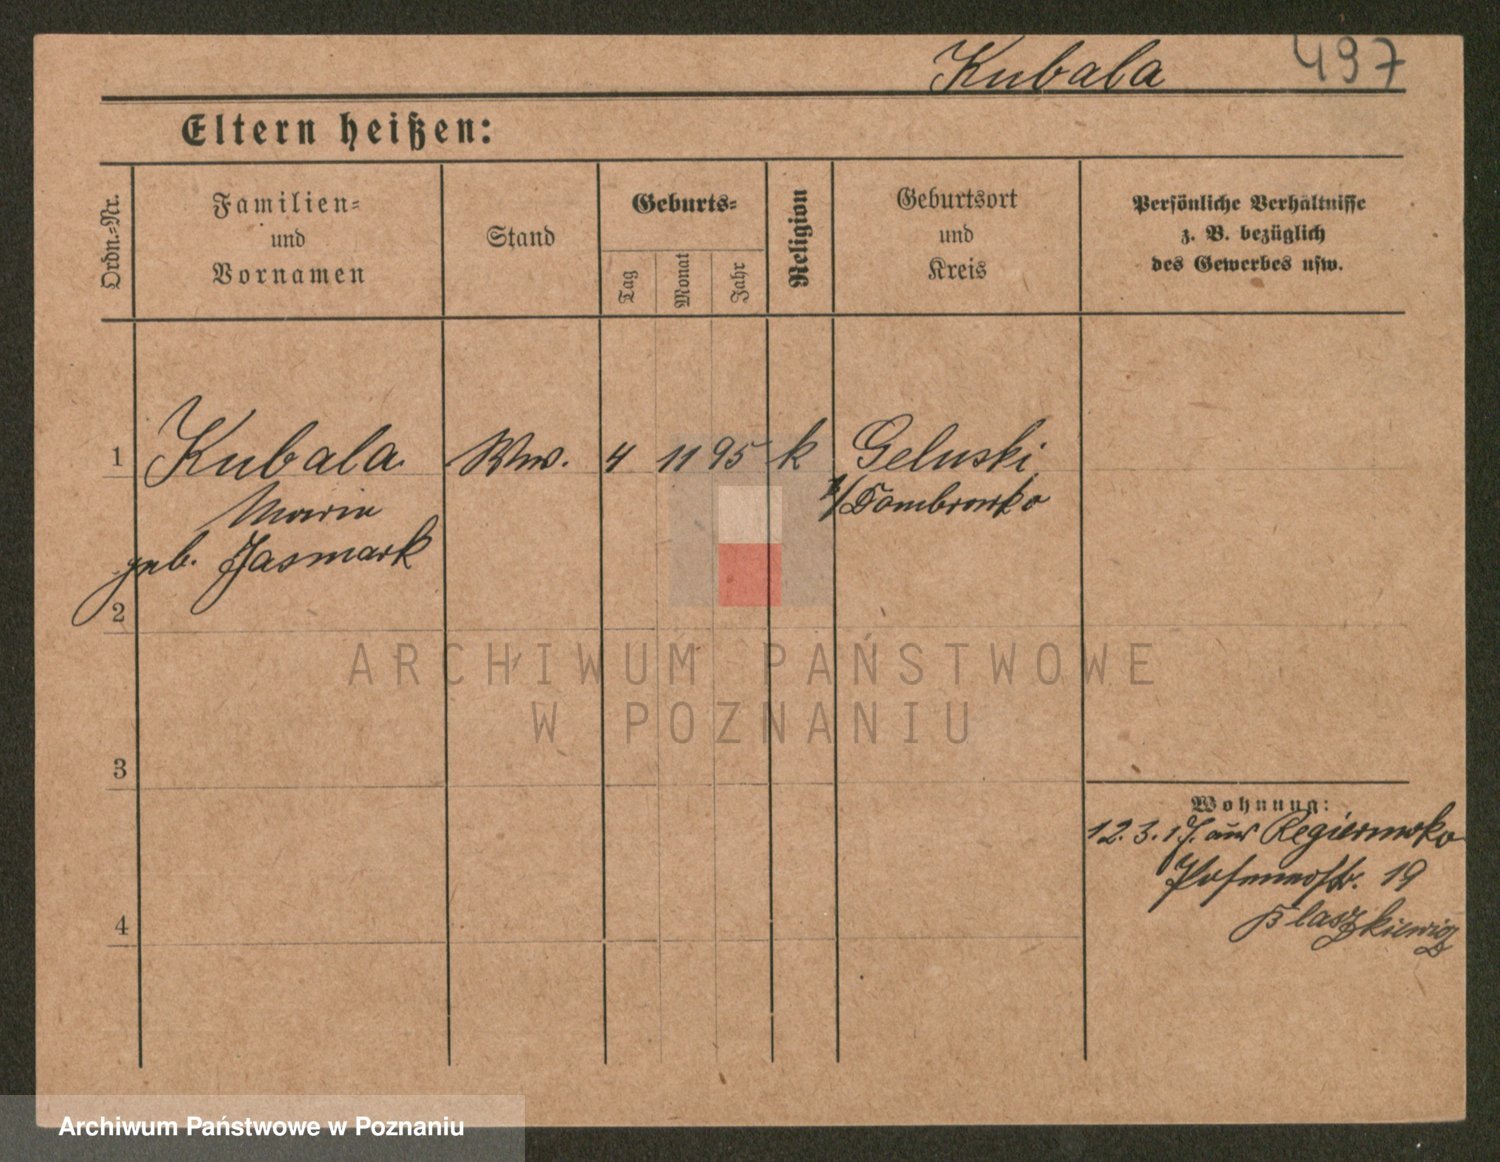 Kubala 497
Eltern heißen:
Ordn.-Nr.
Familien-
und
Vornamen
Stand
Geburts-
Tag
Monat
Jahr
Religion
Geburtsort
und
Kreis
Persönliche Verhältnisse
z. B. bezüglich
des Gewerbes usw.
1 Kubala Ww. 4 11 95 k Geluski
Maria
geb. Jasmark
Dombrowko
2
3
4
Wohnung:
12. 3. 17. aus
Posenerstr. 19
Blaszkiewicz
ARCHIWUM PAŃSTWOWE
W POZNANIU
Archiwum Państwowe w Poznaniu